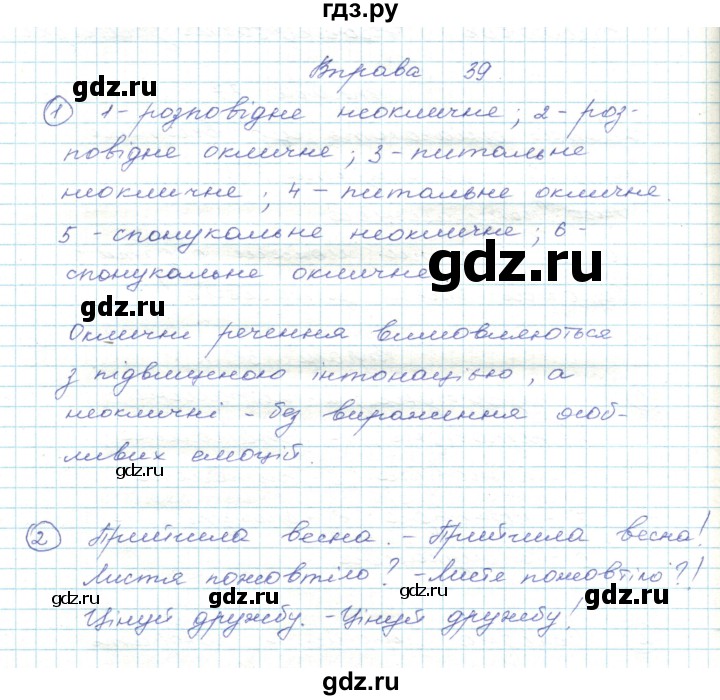 гдз.ру
Вправа 39
1 1 - розповідне неокличне; 2 - роз-
повідне окличне; 3 - питальне
неокличне; 4 - питальне окличне.
5 - спонукальне неокличне; 6 -
спонукальне окличне
Окличні речення вимовляються
з підвищеною інтонацією, а
неокличні - без вираження особ-
ливих емоцій.
2 Прийшла весна. - Прийшла весна!
Листя пожовтіло? - Листя пожовтіло?!
Цінуй дружбу. - Цінуй дружбу!
gdz.ru
gdz.ru
gdz.ru
gdz.ru
gdz.ru
gdz.ru
gdz.ru
gdz.ru
gdz.ru